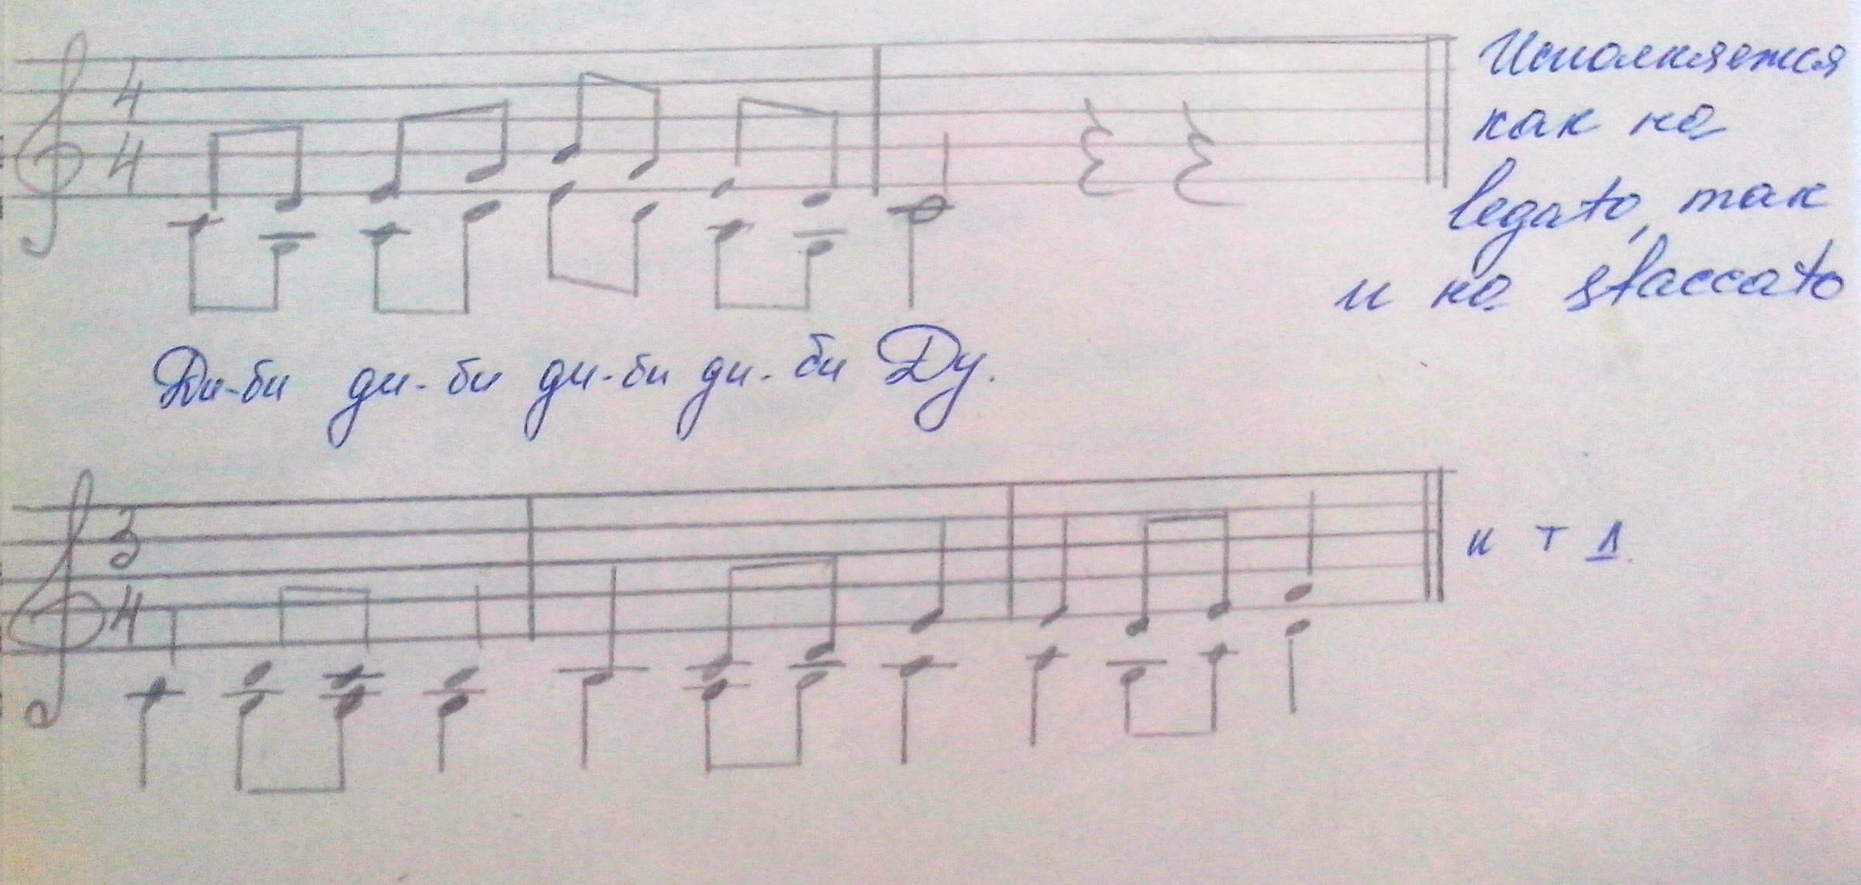 4
4
Исполняется
как на
legato, так
и на staccato
Ди-би ди-би ди-би ди-би Ду.
3
4
и т д.